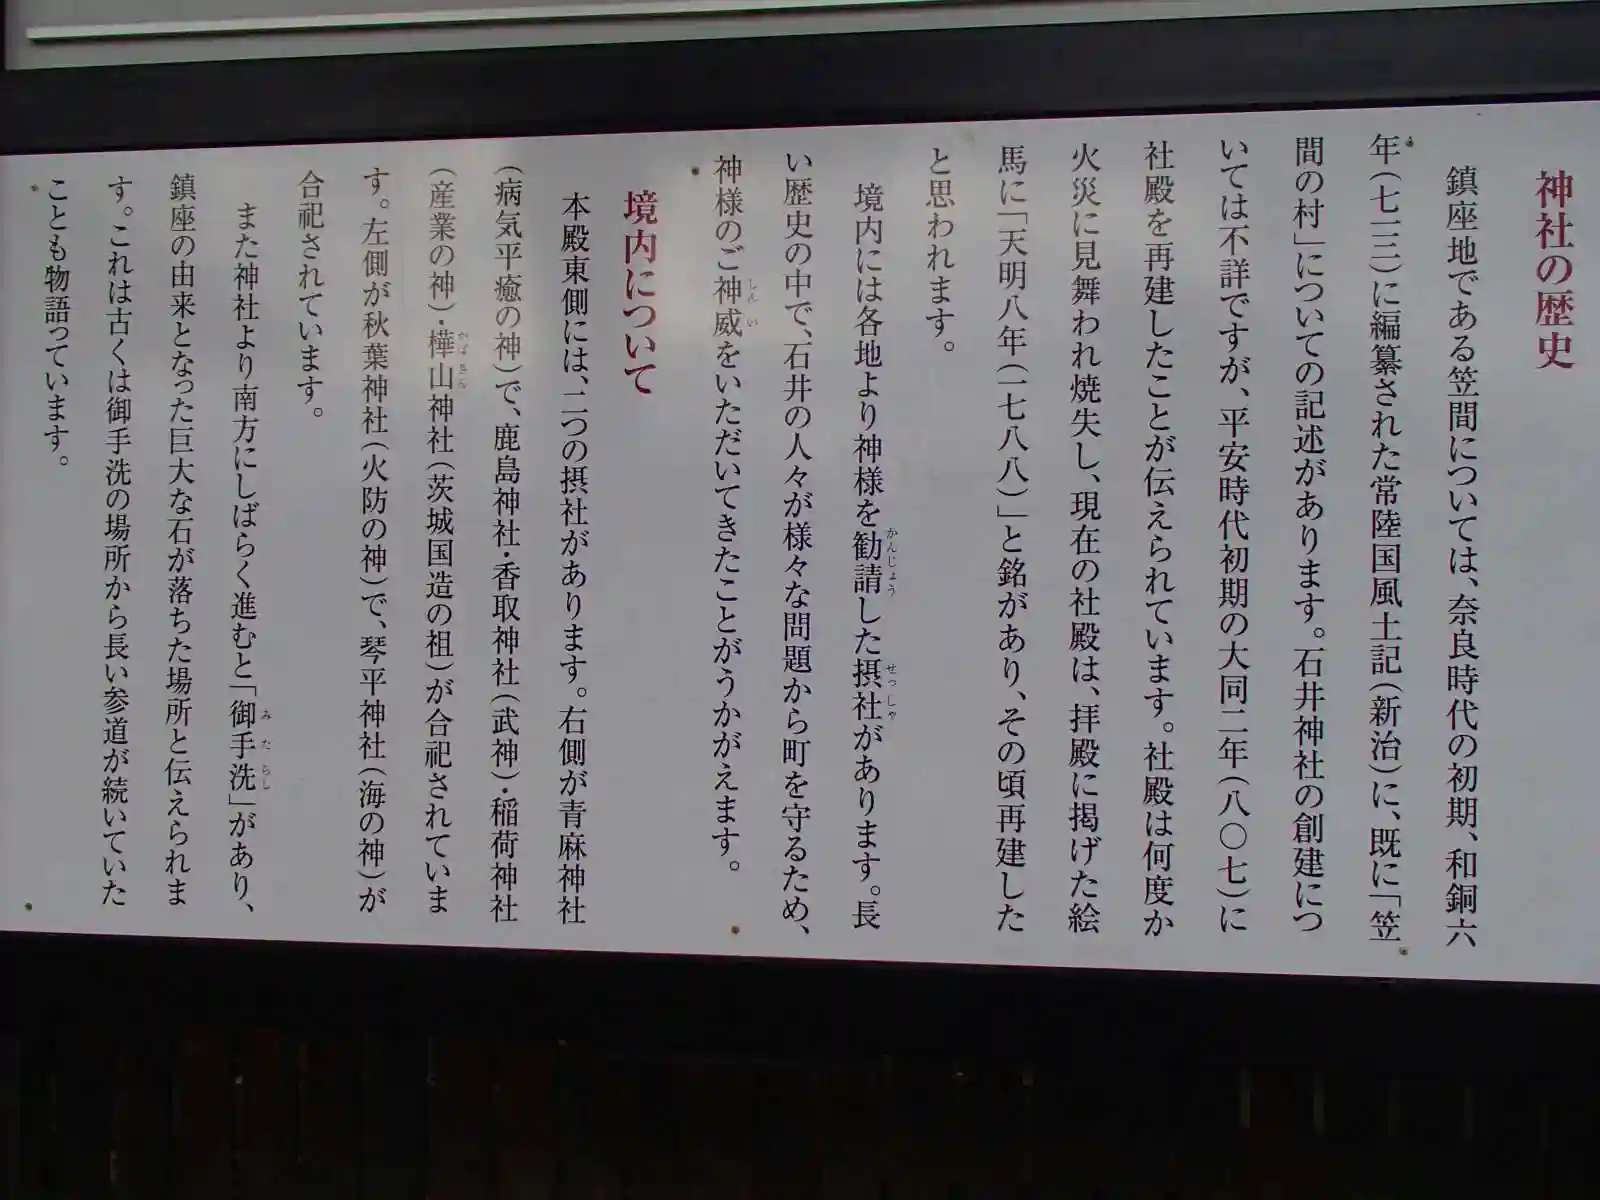 神社の歴史
鎮座地である笠間については、奈良時代の初期、和銅六
年（七一三）に編纂された常陸国風土記（新治）に、既に「笠
間の村」についての記述があります。石井神社の創建につ
いては不詳ですが、平安時代初期の大同二年（八〇七）に
社殿を再建したことが伝えられています。社殿は何度か
火災に見舞われ焼失し、現在の社殿は、拝殿に掲げた絵
馬に「天明八年（一七八八）」と銘があり、その頃再建した
と思われます。
境内には各地より神様を勧請した摂社があります。長
かんじょう
せっしゃ
い歴史の中で、石井の人々が様々な問題から町を守るため、
神様のご神威をいただいてきたことがうかがえます。
しんい
境内について
本殿東側には、二つの摂社があります。右側が青麻神社
（病気平癒の神）で、鹿島神社・香取神社（武神）・稲荷神社
（産業の神）・樺山神社（茨城国造の祖）が合祀されていま
かばさん
す。左側が秋葉神社（火防の神）で、琴平神社（海の神）が
合祀されています。
また神社より南方にしばらく進むと「御手洗」があり、
みたらし
鎮座の由来となった巨大な石が落ちた場所と伝えられま
す。これは古くは御手洗の場所から長い参道が続いていた
ことも物語っています。